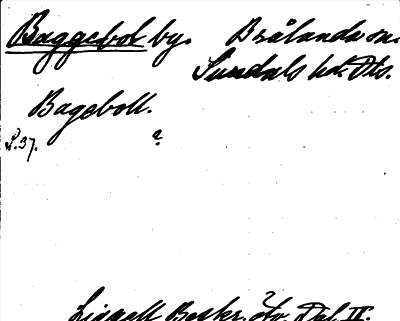 Baggebol by. Brålanda sn.
Sundals hd. Dls.
Bageboll.
L.37. ?
Lignell Beskr. öv. Dal II.